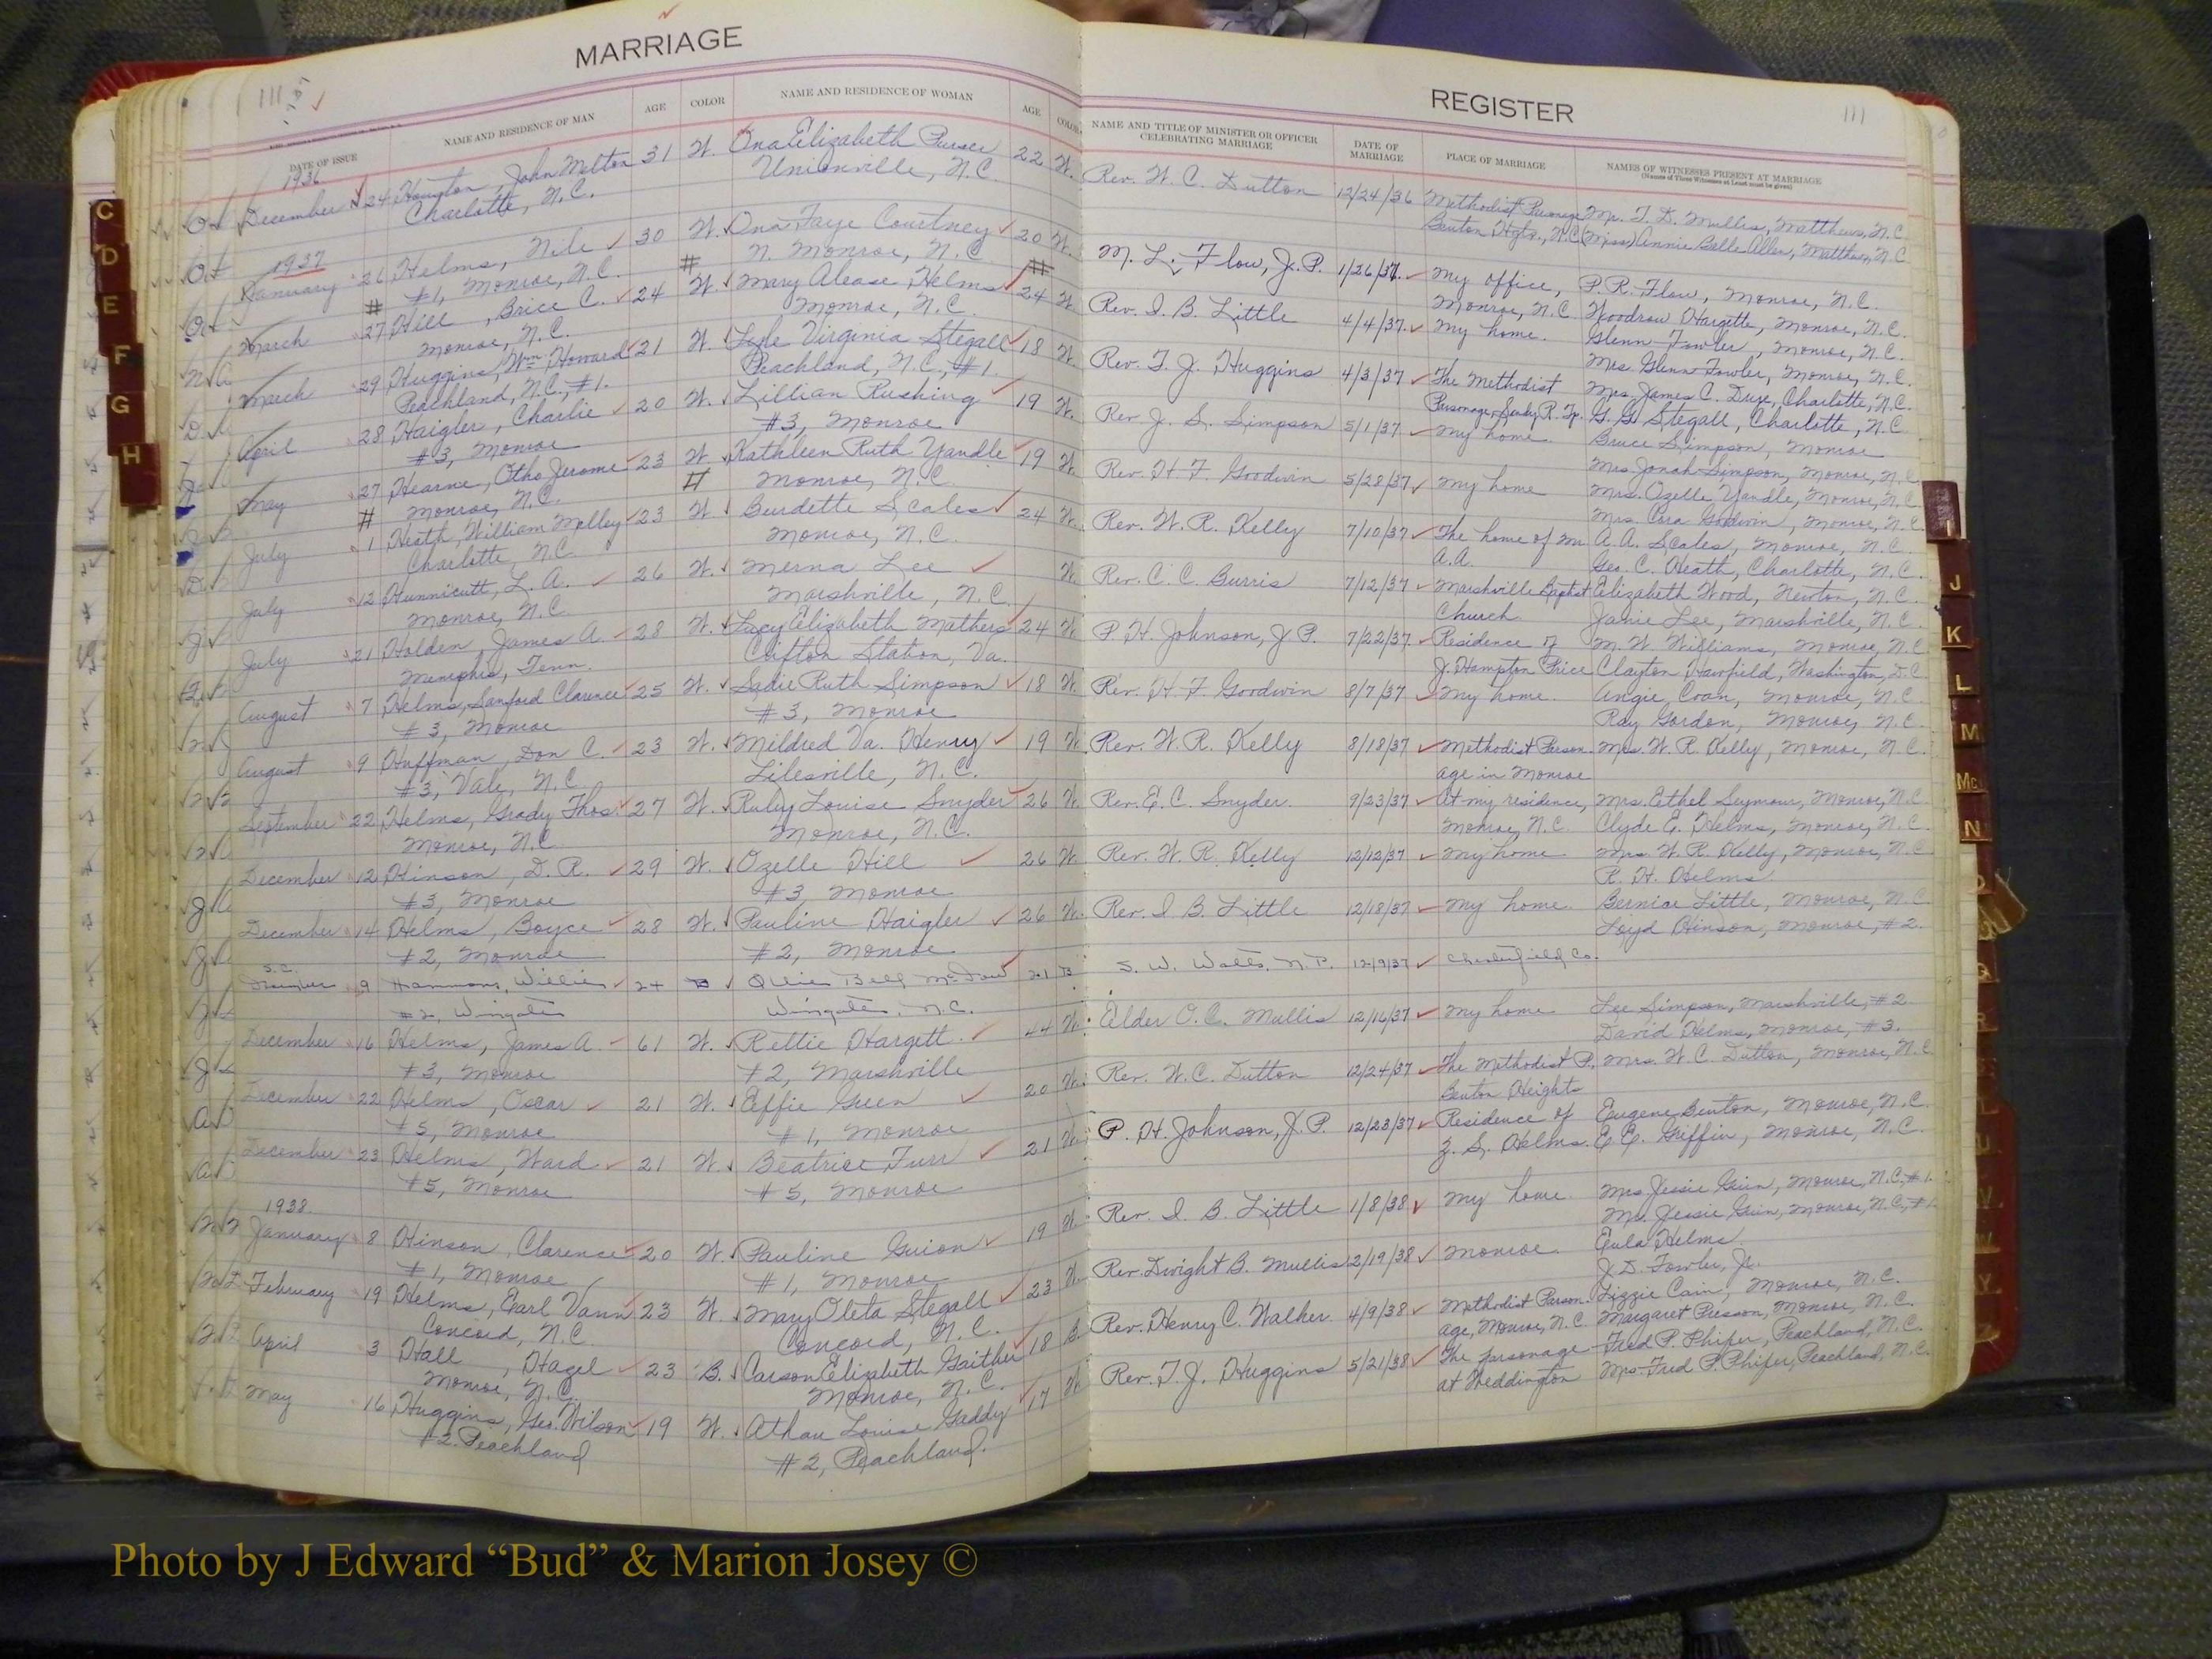 MARRIAGE
111
DATE OF ISSUE
NAME AND RESIDENCE OF MAN
AGE
COLOR
NAME AND RESIDENCE OF WOMAN
AGE
COLOR
1936
December 24 John Milton 31 W. Ona Elizabeth Purser 22 W.
Charlotte, N.C. Unionville, N.C.
1937
January 26 Helms, Nile 30 W. Ona Faye Courtney 20 W.
#1, Monroe, N.C. N. Monroe, N.C.
March 27 Hill, Brice C. 24 W. Mary Alease Helms 24 W.
Monroe, N.C. Monroe, N.C.
March 29 Huggins, Wm Howard 21 W. Virginia Stegall 18 W.
Peachland, N.C., #1. Peachland, N.C., #1.
April 28 Haigler, Charlie 20 W. Lillian Rushing 19 W.
#3, Monroe #3, Monroe
May 27 Hearne, Otho Jerome 23 W. Kathleen Ruth Yandle 19 W.
Monroe, N.C. Monroe, N.C.
July 1 Heath, William 23 W. Burdette Scales 24 W.
Charlotte, N.C. Monroe, N.C.
July 12 Hunnicutt, L. A. 26 W. Merna Lee W.
Monroe, N.C. Marshville, N.C.
July 21 Holden James A. 28 W. Lucy Elizabeth Mathers 24 W.
Memphis, Tenn. Clifton Station, Va.
August 7 Helms, Sanford Clarence 25 W. Sadie Ruth Simpson 18 W.
#3, Monroe #3, Monroe
August 9 Huffman, Don C. 23 W. Mildred Va. Henry 19 W.
#3, Vale, N.C. Lilesville, N.C.
September 22 Helms, Grady Thos. 27 W. Ruby Louise Snyder 26 W
Monroe, N.C. Monroe, N.C.
December 12 Hinson, D. R. 29 W. Ozelle Hill 26 W
#3, Monroe #3, Monroe
December 14 Helms, Boyce 28 W. Pauline Haigler 26 W.
#2, Monroe #2, Monroe
S.C.
December 9 Hammons, Willie 24 B Ollie Bell 21 B
#2, Wingate Wingate, N.C.
December 16 Helms, James A. 61 W. Rettie Hargett 44 W.
#3, Monroe #2, Marshville
December 22 Helms, Oscar 21 W. Effie Green 20 W.
#5, Monroe #1, Monroe
December 23 Helms, Ward 21 W. Beatrice Furr 21 W.
#5, Monroe #5, Monroe
1938
January 8 Hinson, Clarence 20 W. Pauline Guion 19 W.
#1, Monroe #1, Monroe
February 19 Helms, Earl Vann 23 W. Mary Oleta Stegall 23 W.
Concord, N.C. Concord, N.C.
April 3 Hall, Hazel 23 B. Carson Elizabeth Gaither 18 B.
Monroe, N.C. Monroe, N.C.
May 16 Huggins, Geo. Wilson 19 W. Athau Louise Gaddy 17 W
#2 Peachland #2, Peachland.
REGISTER
111
NAME AND TITLE OF MINISTER OR OFFICER
CELEBRATING MARRIAGE
DATE OF
MARRIAGE
PLACE OF MARRIAGE
NAMES OF WITNESSES PRESENT AT MARRIAGE
(Names of Three Witnesses at Least must be given)
Rev. W. C. Dutton 12/24/36 Methodist Parsonage Mr. T. D. Mullis, Matthews, N.C.
Benton Hgts., N.C. (Miss) Annie Belle Allen, Matthews, N.C.
M. L. Flow, J.P. 1/26/37. My office, P. R. Flow, Monroe, N.C.
Monroe, N.C. Woodrow Hargette, Monroe, N.C.
Rev. I. B. Little 4/4/37. My home. Glenn Fowler, Monroe, N.C.
Mrs. Glenn Fowler, Monroe, N.C.
Rev. T. J. Huggins 4/3/37 The Methodist Mrs. James C. Charlotte, N.C.
Parsonage, G. G. Stegall, Charlotte, N.C.
Rev J. S. Simpson 5/1/37 My home Bruce Simpson, Monroe
Mrs Jonah Simpson, Monroe, N.C.
Rev. H. F. Goodwin 5/28/37 My home Mrs. Ozelle Yandle, Monroe, N.C.
Mrs. Cora Goodwin, Monroe, N.C.
Rev. W. R. Kelly 7/10/37 The home of Mr A. A. Scales, Monroe, N.C.
A. A. Geo. C. Heath, Charlotte, N.C.
Rev. C. C. Burris 7/12/37 Marshville Baptist Elizabeth Wood, Newton, N.C.
Church Janie Lee, Marshville, N.C.
P. H. Johnson, J.P. 7/22/37. Residence of M. W. Williams, Monroe, N.C.
J. Hampton Price Clayton Washington, D.C.
Rev. H. F. Goodwin 8/7/37 My home. Angie Coan, Monroe, N.C.
Ray Gordon, Monroe, N.C.
Rev. W. R. Kelly 8/18/37 Methodist Parson- Mrs. W. R. Kelly, Monroe, N.C.
age in Monroe
Rev. E. C. Snyder. 9/23/37 At my residence, Mrs. Ethel Seymour, Monroe, N.C.
Monroe, N.C. Clyde E. Helms, Monroe, N.C.
Rev. W. R. Kelly 12/12/37 My home Mrs. W. R. Kelly, Monroe, N.C.
R. H. Helms
Rev. I. B. Little 12/18/37 My home. Bernice Little, Monroe, N.C.
Loyd Hinson, Monroe, #2.
S. W. Watts, N.P. 12/9/37 Chesterfield Co.
Elder O. C. Mullis 12/16/37 My home Lee Simpson, Marshville, #2
David Helms, Monroe, #3.
Rev. W. C. Dutton 12/24/37 The Methodist P., Mrs. W. C. Dutton, Monroe, N.C.
Benton Heights
P. H. Johnson, J.P. 12/23/37 Residence of Eugene Benton, Monroe, N.C.
Z. S. Helms. E. E. Griffin, Monroe, N.C.
Rev. I. B. Little 1/8/38 My home Mrs. Jessie Monroe, N.C. #1.
Mr. Jessie Monroe, N.C., #1.
Rev. Dwight B. Mullis 2/19/38 Monroe. Eula Helms.
J. D. Fowler, Jr.
Rev. Henry C. Walker. 4/9/38 Methodist Parson- Lizzie Cain, Monroe, N.C.
age, Monroe, N.C. Margaret Presson, Monroe, N.C.
Rev. T. J. Huggins 5/21/38 The parsonage Fred P. Phifer, Peachland, N.C.
at Weddington Mrs. Fred P. Phifer, Peachland, N.C.
C
D
E
F
G
H
I
J
K
L
M
Mc
N
Q
R
Photo by J Edward “Bud” & Marion Josey ©